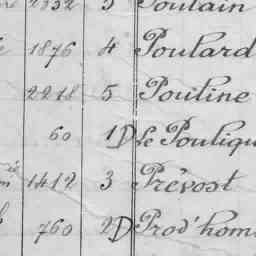 2332 3 Poulain
1876 4 Poulard
2218 5 Pouline
60 1 D Le Pouliqu
1412 3 Prévost
760 2 D Prod'hom